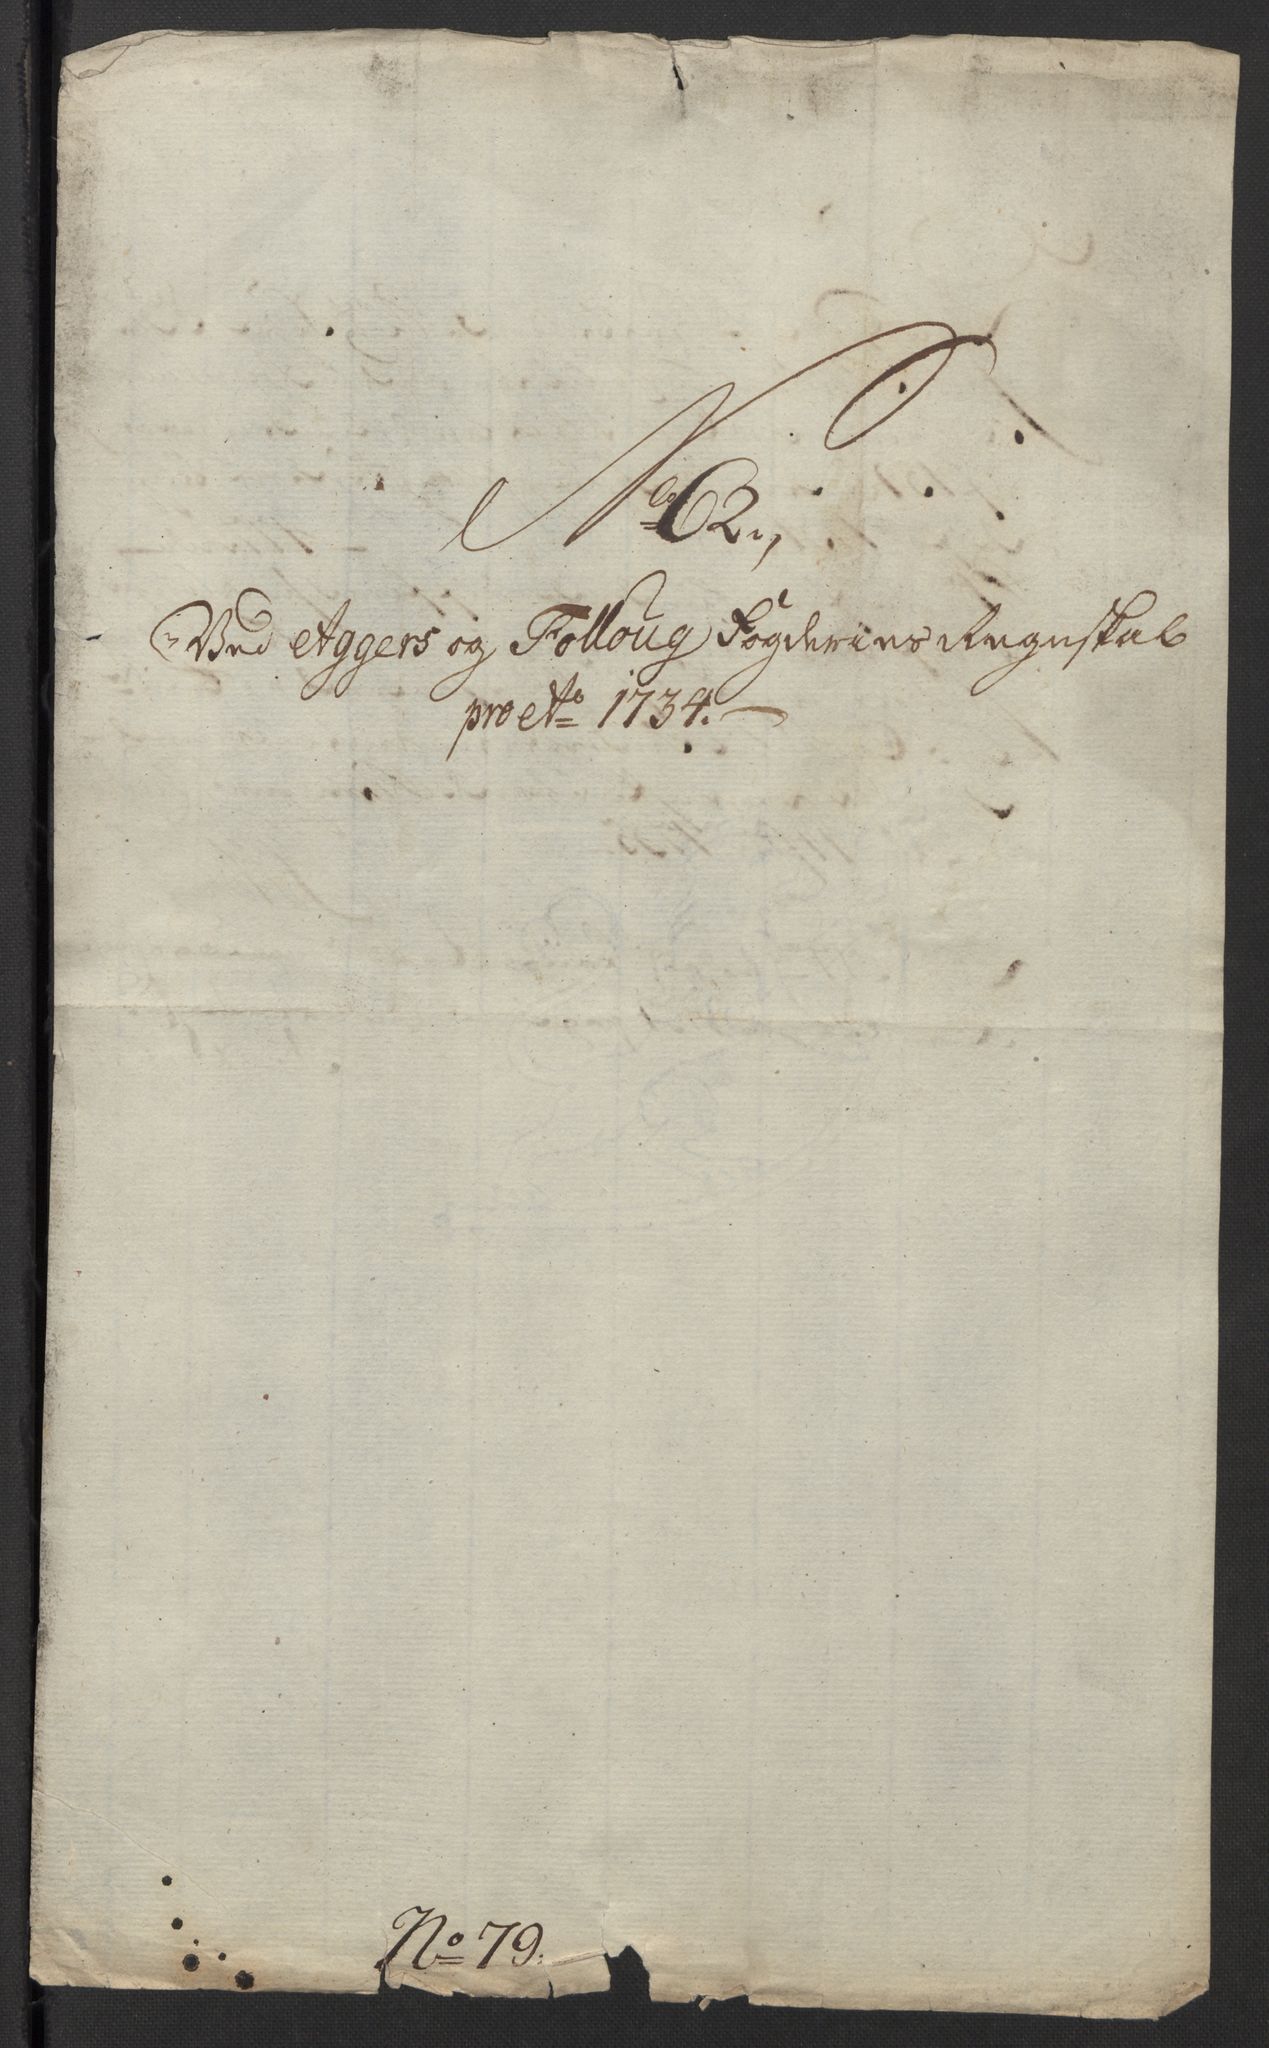 No 62.,
Ved Aggers og Folloug Fogderies Regnskab
pro Ao 1734.
No 79.